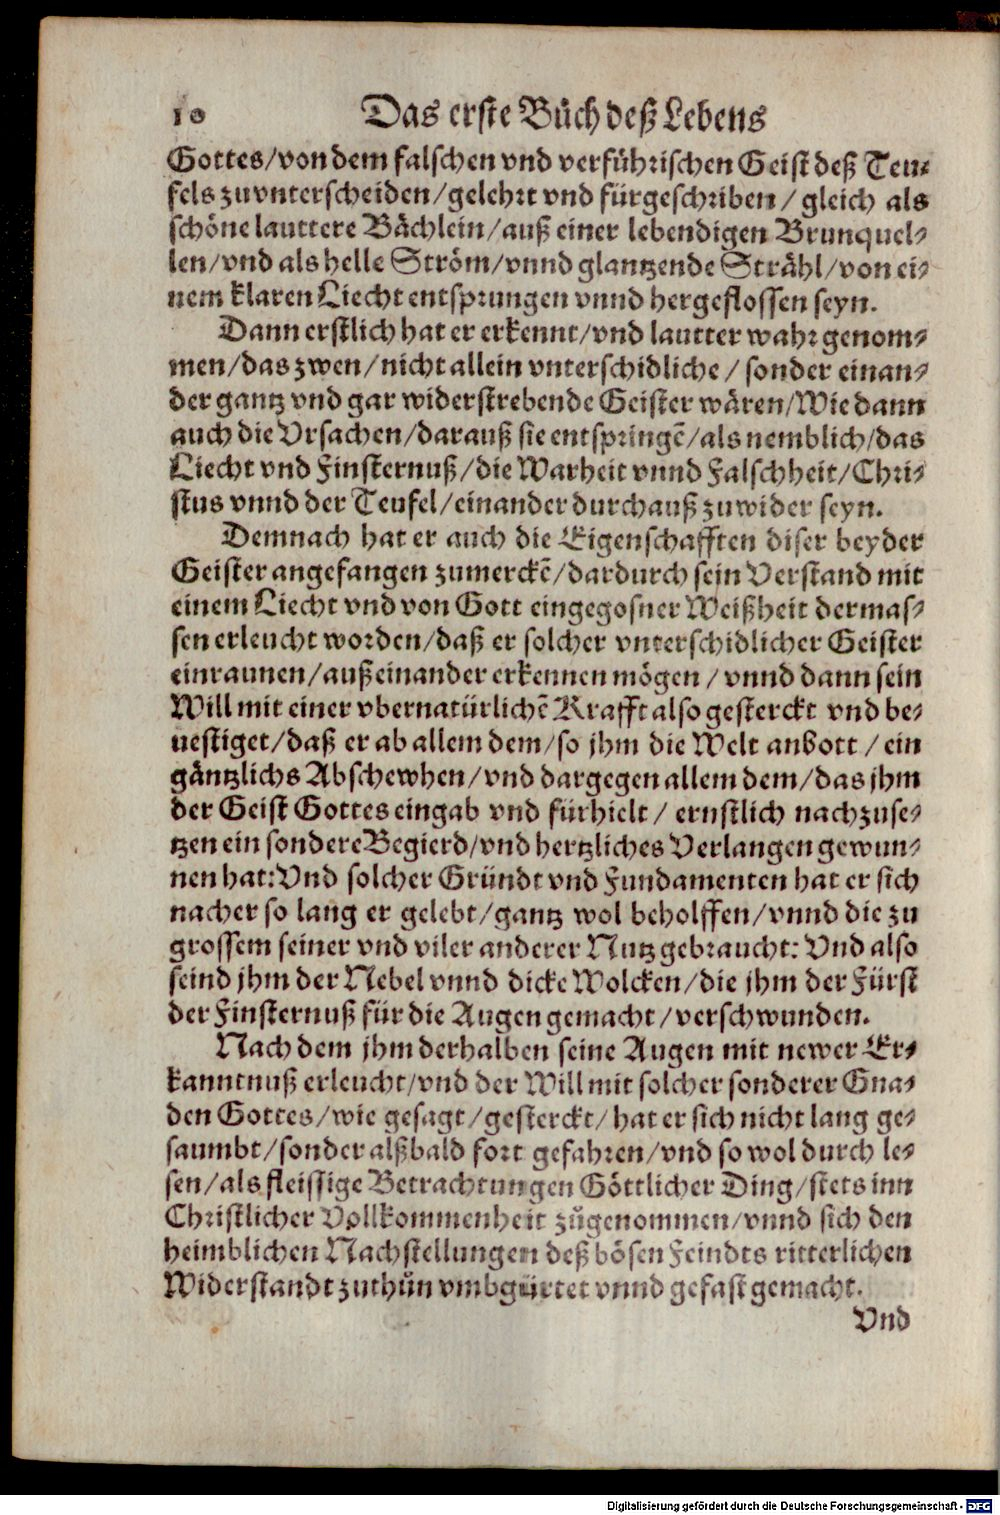 10 Das erste Bůch deß Lebens
Gottes/von dem falschen vnd verführischen Geist deß Teu-
fels zuvnterscheiden/gelehrt vnd fürgeschriben/ gleich als
schöne lauttere Bächlein/auß einer lebendigen Brunquel-
len/vnd als helle Ström/vnnd glantzende Strähl/von ei-
nem klaren Liecht entsprungen vnnd hergeflossen seyn.
Dann erstlich hat er erkennt/vnd lautter wahr genom-
men/das zwen/nicht allein vnterschidliche/ sonder einan-
der gantz vnd gar widerstrebende Geister wären/Wie dann
auch die Vrsachen/darauß sie entspringē/als nemblich/das
Liecht vnd Finsternuß/die Warheit vnnd Falschheit/Chri-
stus vnnd der Teufel/einander durchauß zuwider seyn.
Demnach hat er auch die Eigenschafften diser beyder
Geister angefangen zumerckē/dardurch sein Verstand mit
einem Liecht vnd von Gott eingegosner Weißheit dermas-
sen erleucht worden/daß er solcher vnterschidlicher Geister
einraunen/außeinander erkennen mögen/ vnnd dann sein
Will mit einer vbernatürlichē Krafft also gesterckt vnd be-
uestiget/daß er ab allem dem/so jhm die Welt anbott/ ein
gäntzlichs Abschewhen/vnd dargegen allem dem/das jhm
der Geist Gottes eingab vnd fürhielt/ ernstlich nachzuse-
tzen ein sondere Begierd/vnd hertzliches Verlangen gewun-
nen hat: Vnd solcher Gründt vnd Fundamenten hat er sich
nacher so lang er gelebt/gantz wol beholffen/vnnd die zu
grossem seiner vnd viler anderer Nutz gebraucht: Vnd also
seind jhm der Nebel vnnd dicke Wolcken/die jhm der Fürst
der Finsternuß für die Augen gemacht/verschwunden.
Nach dem jhm derhalben seine Augen mit newer Er-
kanntnuß erleucht/vnd der Will mit solcher sonderer Gna-
den Gottes/wie gesagt/gesterckt/ hat er sich nicht lang ge-
saumbt/sonder alßbald fort gefahren/vnd so wol durch le-
sen/als fleissige Betrachtungen Göttlicher Ding/stets inn
Christlicher Vollkommenheit zůgenommen/vnnd sich den
heimblichen Nachstellungen deß bösen Feindts ritterlichen
Widerstandt zuthůn vmbgürtet vnnd gefast gemacht.
Vnd
Digitalisierung gefördert durch die Deutsche Forschungsgemeinschaft - DFG